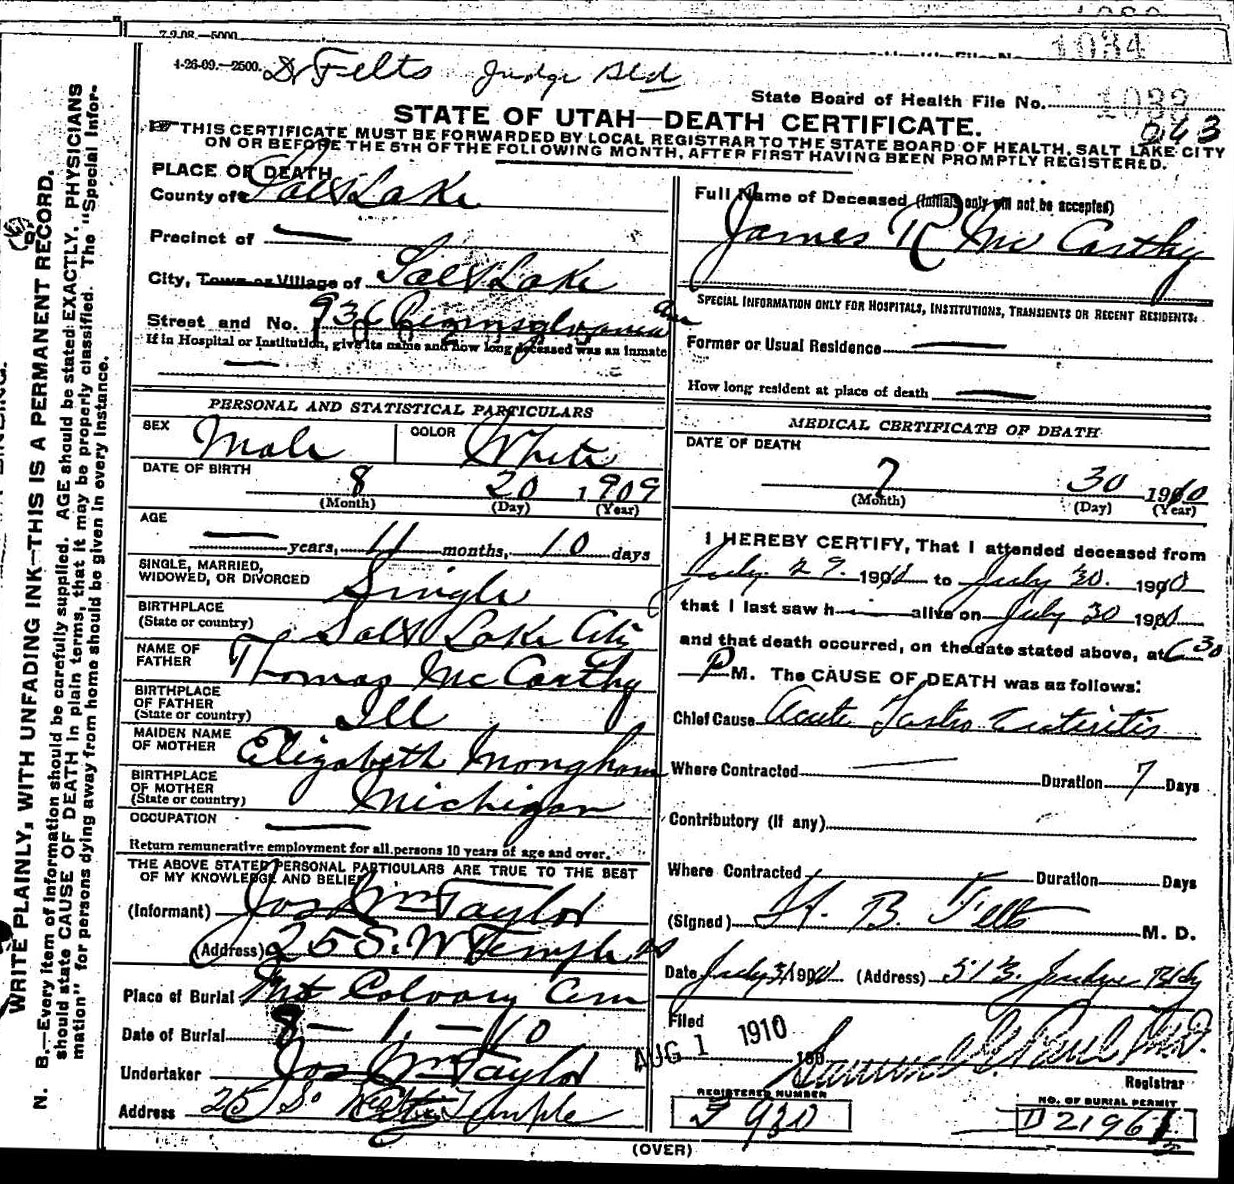 7-9-08.—5000.
1034
4-26-09.—2500. Dr Felts Judge Bld
State Board of Health File No. 1033
STATE OF UTAH—DEATH CERTIFICATE.
THIS CERTIFICATE MUST BE FORWARDED BY LOCAL REGISTRAR TO THE STATE BOARD OF HEALTH, SALT LAKE CITY
ON OR BEFORE THE 5TH OF THE FOLLOWING MONTH, AFTER FIRST HAVING BEEN PROMPTLY REGISTERED.
WRITE PLAINLY, WITH UNFADING INK—THIS IS A PERMANENT RECORD.
N. B.—Every item of information should be carefully supplied. AGE should be stated EXACTLY. PHYSICIANS
should state CAUSE OF DEATH in plain terms, that it may be properly classified. The "Special Infor-
mation" for persons dying away from home should be given in every instance.
PLACE OF DEATH
County of Salt Lake
Precinct of —
City, Town or Village of Salt Lake
Street and No. 936 Pennsylvania Ave
If in Hospital or Institution, give its name and how long deceased was an inmate
—
PERSONAL AND STATISTICAL PARTICULARS
SEX Male COLOR White
DATE OF BIRTH
8 20 1909
(Month) (Day) (Year)
AGE
— years, 11 months, 10 days
SINGLE, MARRIED,
WIDOWED, OR DIVORCED Single
BIRTHPLACE
(State or country) Salt Lake City
NAME OF
FATHER Thomas McCarthy
BIRTHPLACE
OF FATHER
(State or country) Ill
MAIDEN NAME
OF MOTHER Elizabeth Monghan
BIRTHPLACE
OF MOTHER
(State or country) Michigan
OCCUPATION —
Return remunerative employment for all persons 10 years of age and over.
THE ABOVE STATED PERSONAL PARTICULARS ARE TRUE TO THE BEST
OF MY KNOWLEDGE AND BELIEF
(Informant) Jos Wm Taylor
(Address) 25 S. W Temple
Place of Burial Mt Calvary Cem
Date of Burial 8 — 1 — 10
Undertaker Jos Wm Taylor
Address 25 So West Temple
Full Name of Deceased (Initials only will not be accepted)
James R McCarthy
SPECIAL INFORMATION ONLY FOR HOSPITALS, INSTITUTIONS, TRANSIENTS OR RECENT RESIDENTS.
Former or Usual Residence —
How long resident at place of death —
MEDICAL CERTIFICATE OF DEATH
DATE OF DEATH
7 30 1910
(Month) (Day) (Year)
I HEREBY CERTIFY, That I attended deceased from
July 29. 1910 to July 30. 1910
that I last saw h— alive on July 30 1910
and that death occurred, on the date stated above, at 6 30
P M. The CAUSE OF DEATH was as follows:
Chief Cause Acute Gastro Enteritis
Where Contracted — Duration 7 Days
Contributory (if any)
Where Contracted Duration Days
(Signed) H. B. Felts M. D.
Date July 31 1910 (Address) 513 Judge Bldg
Filed
AUG 1 1910 190
Samuel G. Paul M.D.
Registrar
REGISTERED NUMBER
930
NO. OF BURIAL PERMIT
D 21961
(OVER)